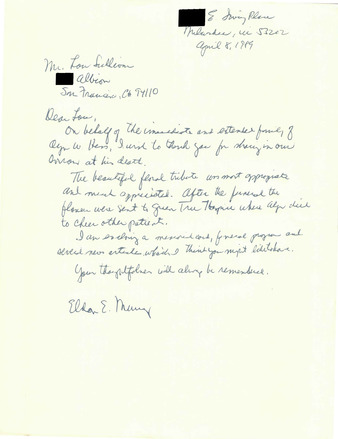 E. Irving Place
Milwaukee, WI 53202
April 8, 1989
Mr. Lou Sullivan
Albion
San Francisco, CA 94110
Dear Lou,
On behalf of the immediate and extended family of
W. Hess, I want to thank you for sharing in our
sorrow at his death.
The beautiful floral tribute was most appropriate
and much appreciated. After the funeral the
flowers were sent to Green Tree where died
to cheer other patients.
I am enclosing a memorial card, funeral program and
several news articles which I think you might like to have.
Your thoughtfulness will always be remembered.
Eldon E. Murray